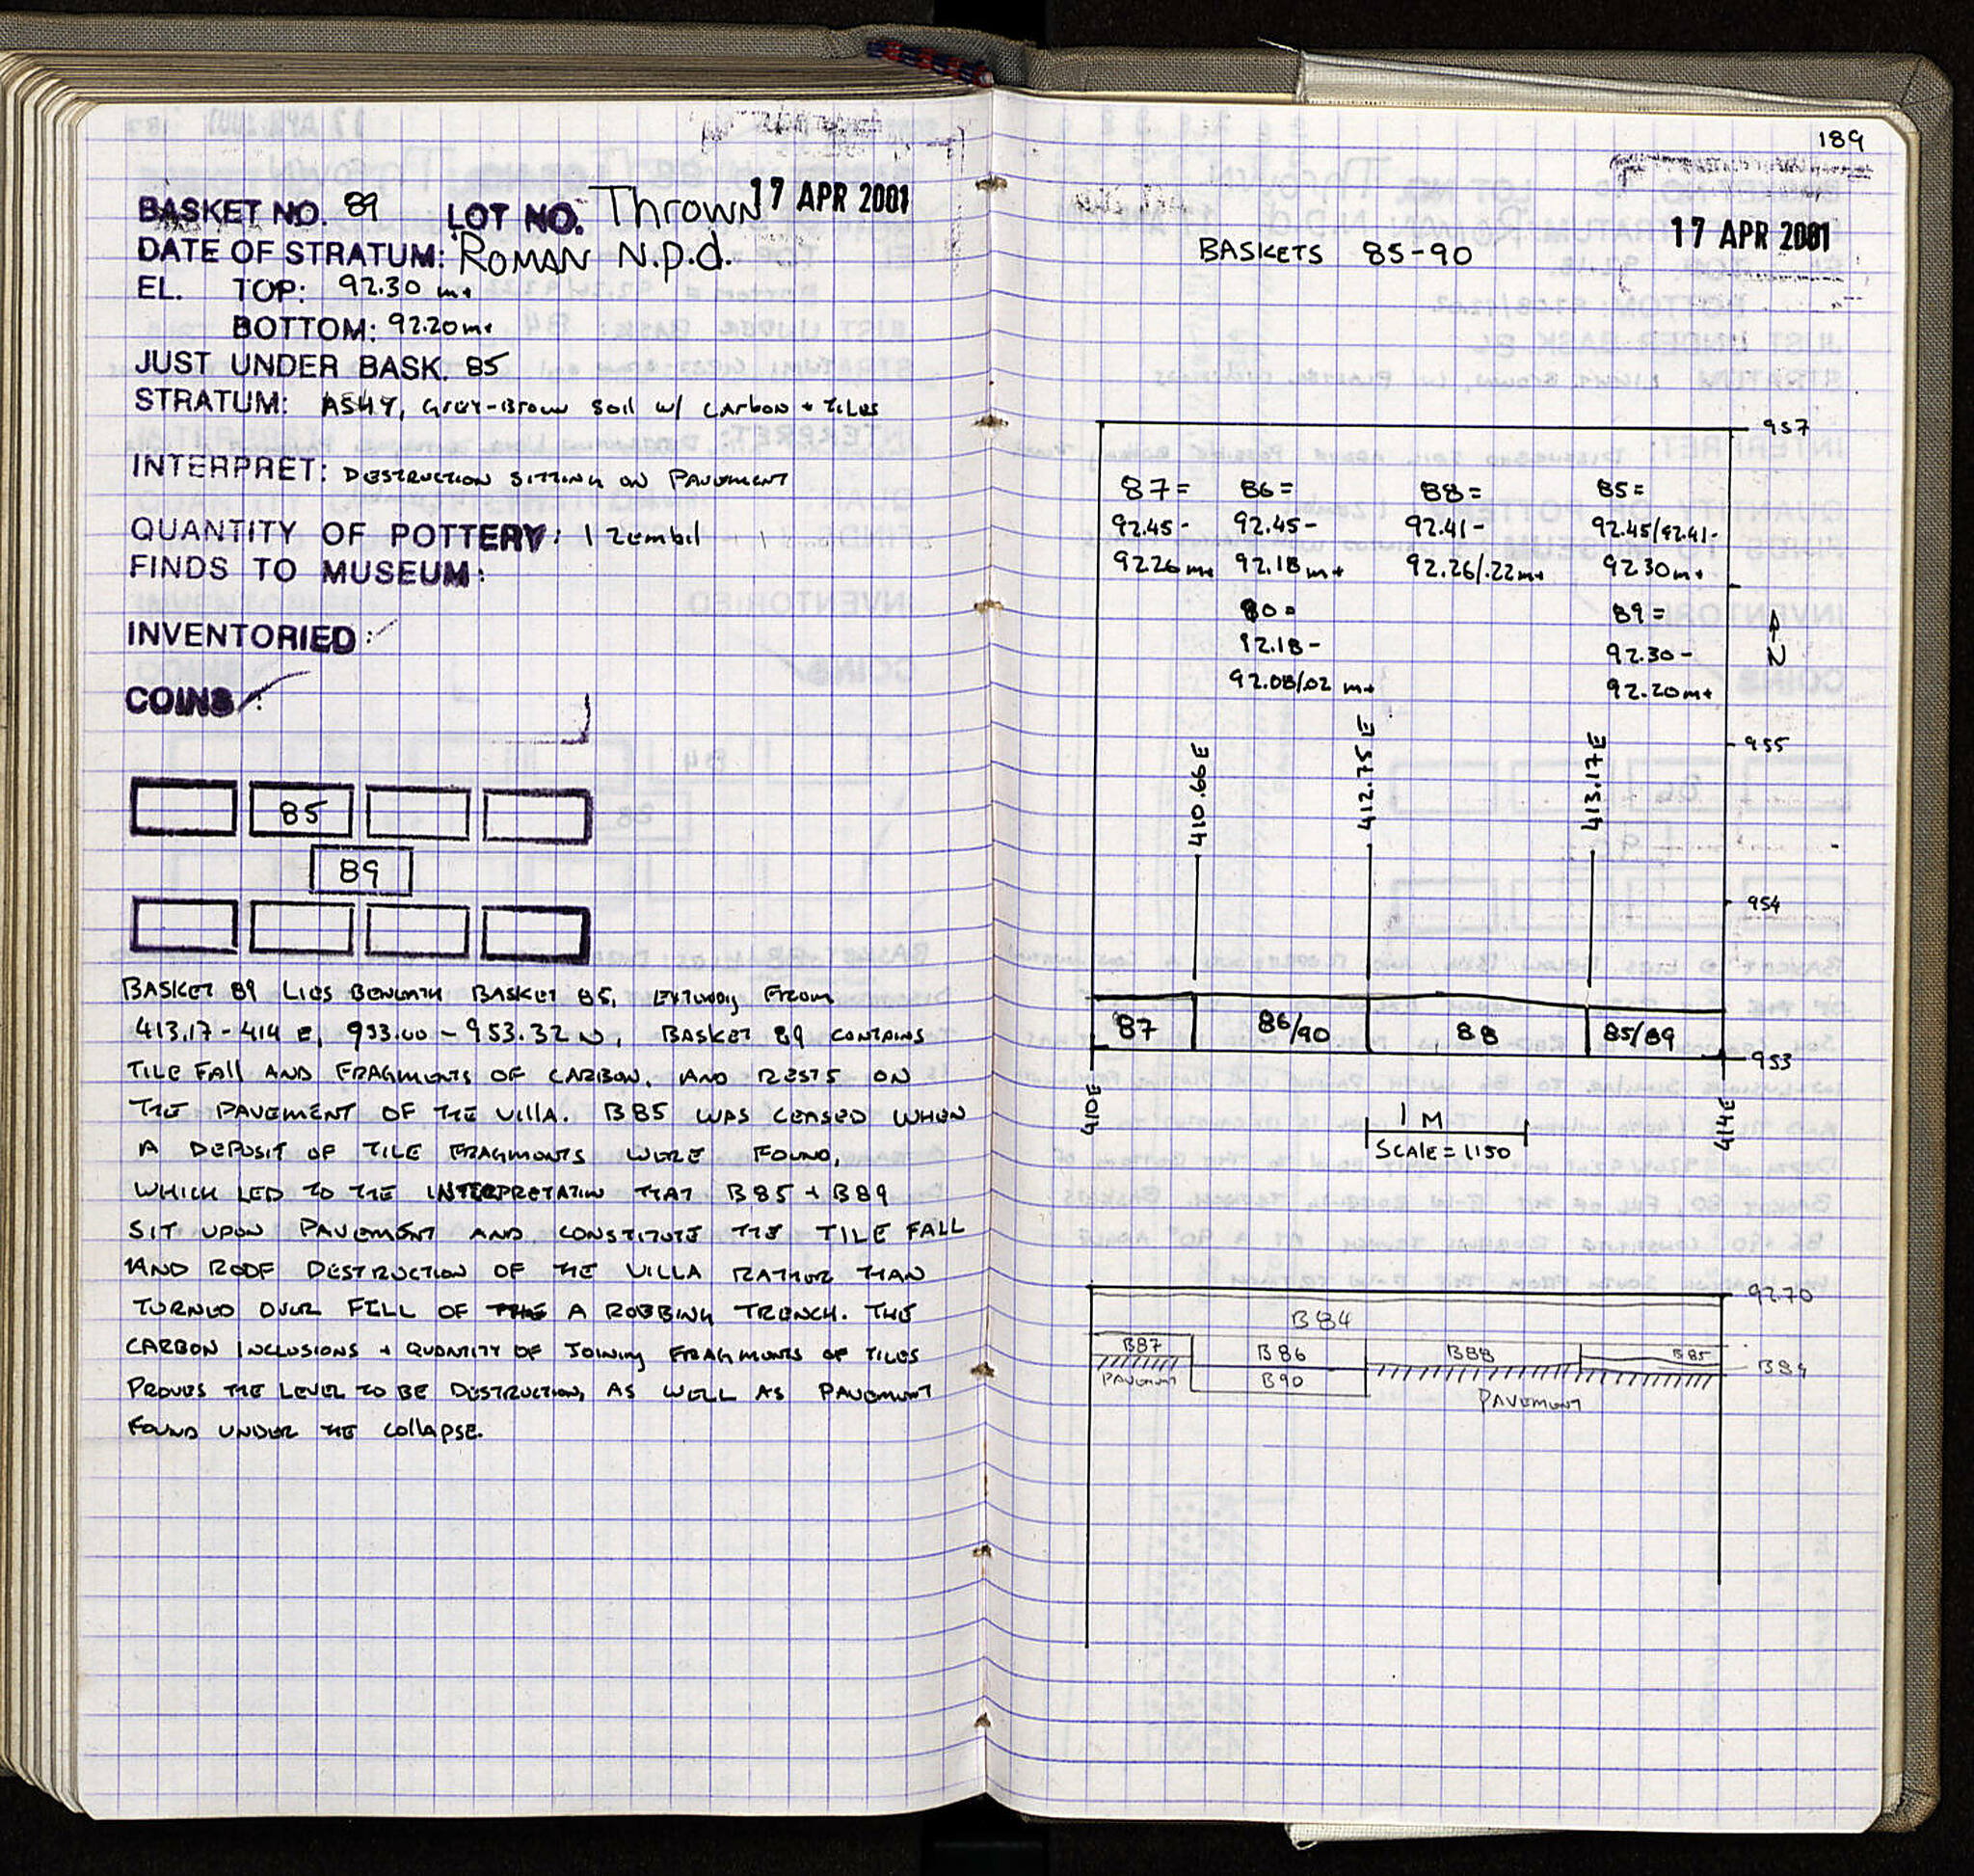 BASKET NO. 89 LOT NO. Thrown 17 APR 2001
DATE OF STRATUM: ROMAN N.p.d.
EL. TOP: 92.30 m+
BOTTOM: 92.20m+
JUST UNDER BASK. 85
STRATUM: ASHY, Grey-Brown Soil w/ Carbon + Tiles
INTERPRET: DESTRUCTION SITTING ON PAVEMENT
QUANTITY OF POTTERY: 1 zembil
FINDS TO MUSEUM:
INVENTORIED:
COINS:
85
89
BASKET 89 LIES BENEATH BASKET 85, EXTENDING FROM
413.17 - 414 E, 953.00 - 953.32 N, BASKET 89 CONTAINS
TILE FAll AND FRAGMENTS OF CARBON, AND RESTS ON
THE PAVEMENT OF THE VIllA. B85 WAS CEASED WHEN
A DEPOSIT OF TILE FRAGMENTS WERE FOUND,
WHICH LED TO THE INTERPRETATION THAT B85 + B89
SIT UPON PAVEMENT AND CONSTITUTE THE TILE FALL
AND ROOF DESTRUCTION OF THE VILLA RATHER THAN
TURNED OVER FILL OF A ROBBING TRENCH. THE
CARBON INCLUSIONS + QUANTITY OF JOINING FRAGMENTS OF TILES
PROVES THE LEVEL TO BE DESTRUCTION, AS WELL AS PAVEMENT
FOUND UNDER THE COllAPSE.
189
17 APR 2001
BASKETS 85-90
957
87= 86= 88= 85=
92.45- 92.45- 92.41- 92.45/92.41-
9226m+ 92.18m+ 92.26/.22m+ 92.30m+
90= 89=
92.18- 92.30-
92.08/.02 m+ 92.20m+
N
955
410.66 E
412.75 E
413.17 E
954
87 86/90 88 85/89
953
410E
414E
1 M
SCALE = 1:150
92.70
B84
B87 B86 B88 B85
B89
PAVEMENT B90
PAVEMENT